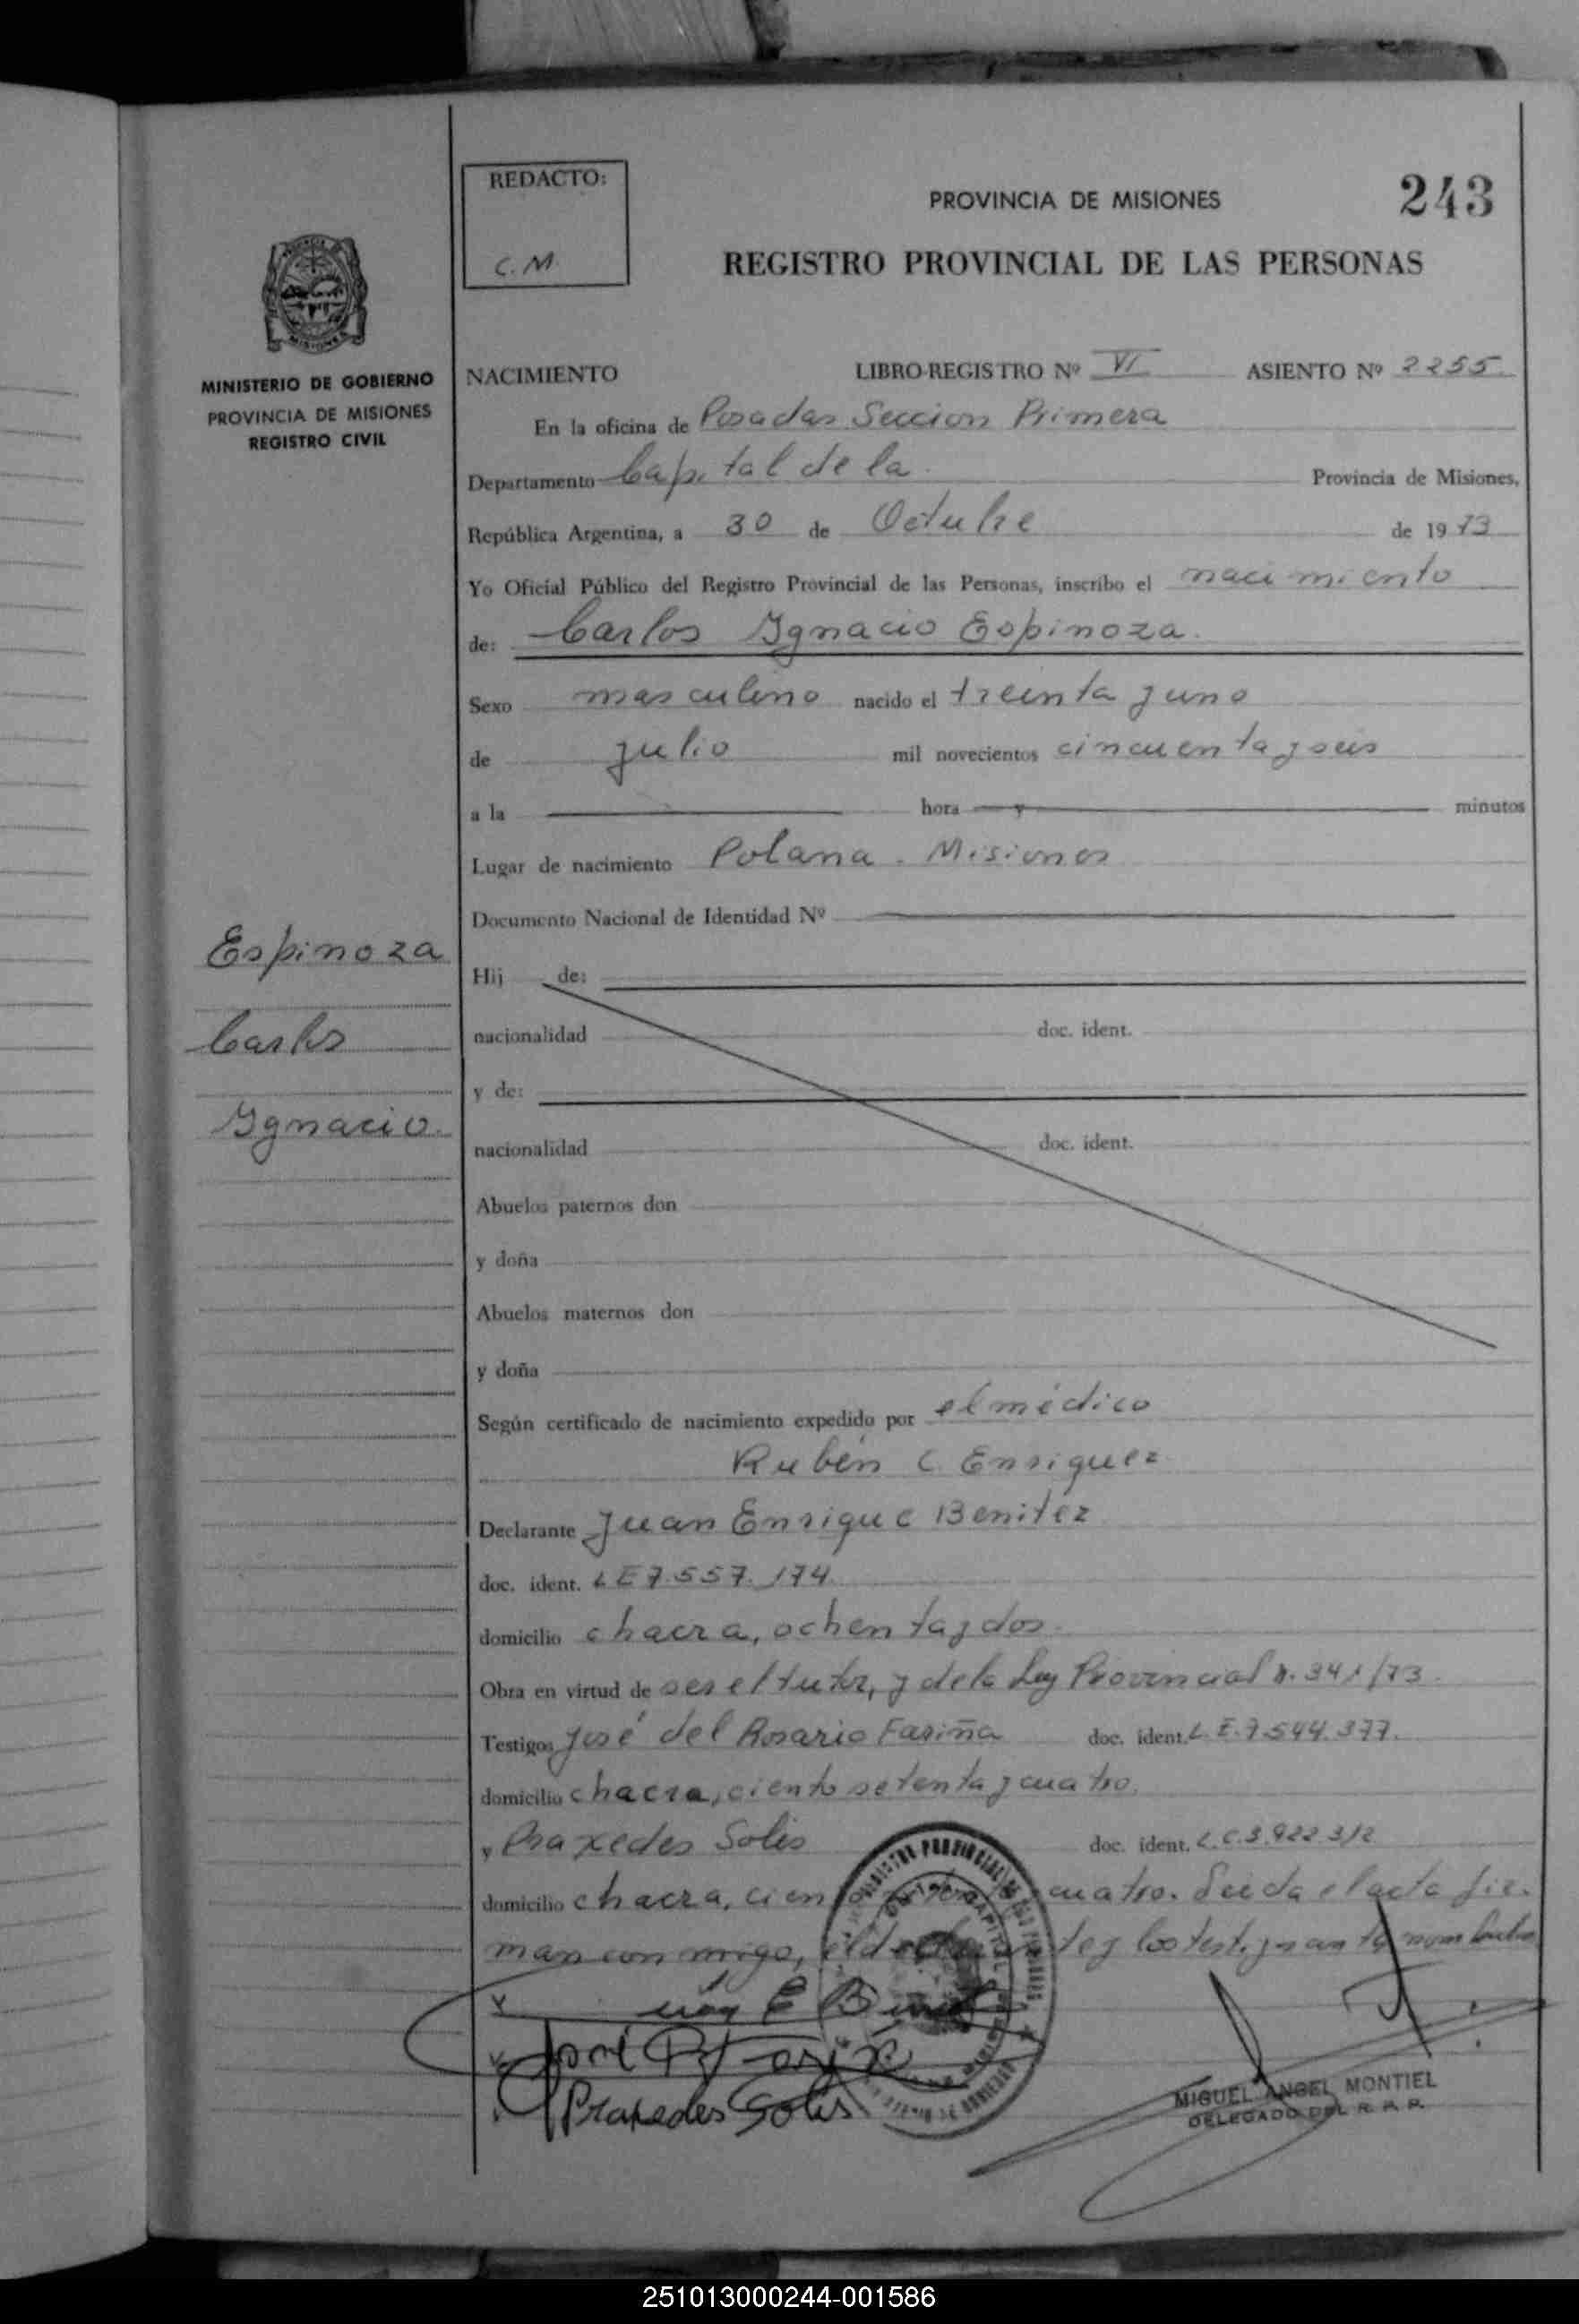 REDACTO:
C. M.
PROVINCIA DE MISIONES
243
REGISTRO PROVINCIAL DE LAS PERSONAS
MISIONES
MINISTERIO DE GOBIERNO
PROVINCIA DE MISIONES
REGISTRO CIVIL
NACIMIENTO LIBRO-REGISTRO Nº VI ASIENTO Nº 2255
En la oficina de Posadas Seccion Primera
Departamento Capital de la Provincia de Misiones,
República Argentina, a 30 de Octubre de 1973
Yo Oficial Público del Registro Provincial de las Personas, inscribo el nacimiento
de: Carlos Ygnacio Espinoza.
Sexo masculino nacido el treinta y uno
de julio mil novecientos cincuenta y seis
a la hora y minutos
Lugar de nacimiento Polana - Misiones
Documento Nacional de Identidad Nº
Espinoza
Carlos
Ygnacio.
Hij de:
nacionalidad doc. ident.
y de:
nacionalidad doc. ident.
Abuelos paternos don
y doña
Abuelos maternos don
y doña
Según certificado de nacimiento expedido por el médico
Rubén C. Enriquez
Declarante Juan Enrique Benitez
doc. ident. L E 7.557.174.
domicilio chacra, ochenta y dos.
Obra en virtud de ser el tutor, y de la Ley Provincial n. 341/73.
Testigos José del Rosario Fariña doc. ident. L.E.7.544.377.
domicilio chacra, ciento setenta y cuatro.
y Praxedes Solis doc. ident. L.C.3.922.312
domicilio chacra, ciento setenta y cuatro. Leida el acta fir-
man conmigo, el declarante y los testigos antes nombrados
E Benitez
José R Fariña
Praxedes Solis
MIGUEL ANGEL MONTIEL
DELEGADO DEL R. P. P.
251013000244-001586